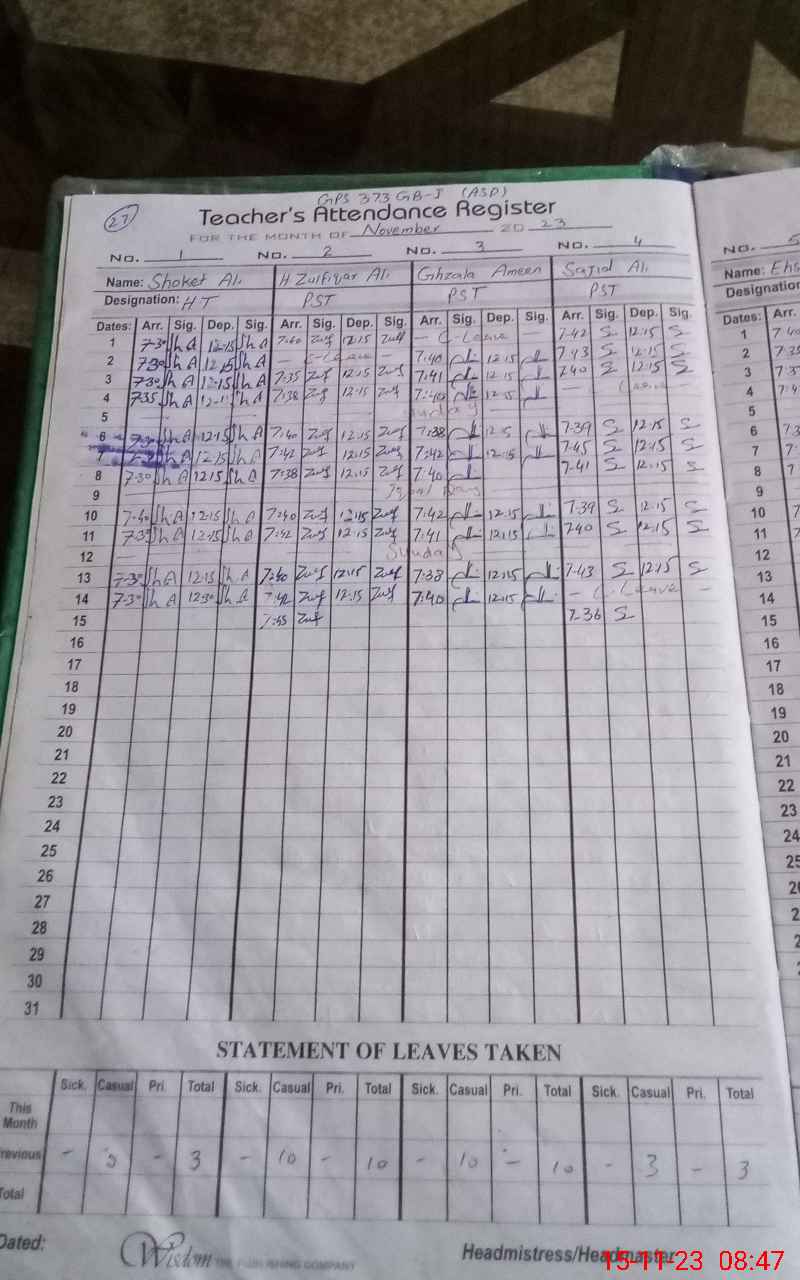 GPS 373 GB-I (ASP)
27 Teacher's Attendance Register
FOR THE MONTH OF November 20 23
No. 1 No. 2 No. 3 No. 4 No. 5
Name: Shoket Ali H Zulfiqar Ali Ghzala Ameen Sajid Ali Name: Ehs
Designation: HT PST PST PST Designation
Dates: Arr. Sig. Dep. Sig. Arr. Sig. Dep. Sig. Arr. Sig. Dep. Sig. Arr. Sig. Dep. Sig. Dates: Arr.
1 7-30 Sh A 12-15 Sh A 7:40 Zulf 12:15 Zulf - C-Leave 7-42 S 12:15 S 1
2 7-30 Sh A 12,15 Sh A - - 7:40 12:15 7-43 S 12:15 S 2
3 7-30 Sh A 12-15 Sh A 7:35 Zulf 12:15 Zulf 7:41 12:15 7-40 S 12:15 S 3
4 7-35 Sh A Sh A 7:38 Zulf 12:15 Zulf 7:40 12:15 - Leave - 4
5 Sunday 5
6 7-30 Sh A 12-15 Sh A 7:40 Zulf 12:15 Zulf 7:38 7-39 S 12:15 S 6
7 Sh A 12-15 Sh A 7:42 Zulf 12:15 Zulf 7:42 12:15 7-45 S 12:15 S 7
8 7-30 Sh A 12.15 Sh A 7:38 Zulf 12:15 Zulf 7:40 7-41 S 12:15 S 8
9 Iqbal Day 9
10 7-40 Sh A 12:15 Sh A 7:40 Zulf 12:15 Zulf 7:42 12:15 7-39 S 12:15 S 10
11 7-30 Sh A 12:15 Sh A 7:42 Zulf 12:15 Zulf 7:41 12:15 7-40 S 12:15 S 11
12 Sunday 12
13 7-30 Sh A 12:15 Sh A 7:40 Zulf 12:15 Zulf 7:38 12:15 7-43 S 12:15 S 13
14 7-30 Sh A 12:30 Sh A 7:42 Zulf 12:15 Zulf 7:40 12:15 - C-Leave - 14
15 Zulf 7-36 S 15
16 16
17 17
18 18
19 19
20 20
21 21
22 22
23 23
24 24
25 25
26 26
27
28
29
30
31
STATEMENT OF LEAVES TAKEN
Sick. Casual Pri. Total Sick. Casual Pri. Total Sick. Casual Pri. Total Sick. Casual Pri. Total
This
Month
revious - 3 - 3 - 10 - 10 - 10 - 10 - 3 - 3
Total
Dated:
Wisdom THE PUBLISHING COMPANY Headmistress/Headmaster
15-11-23 08:47